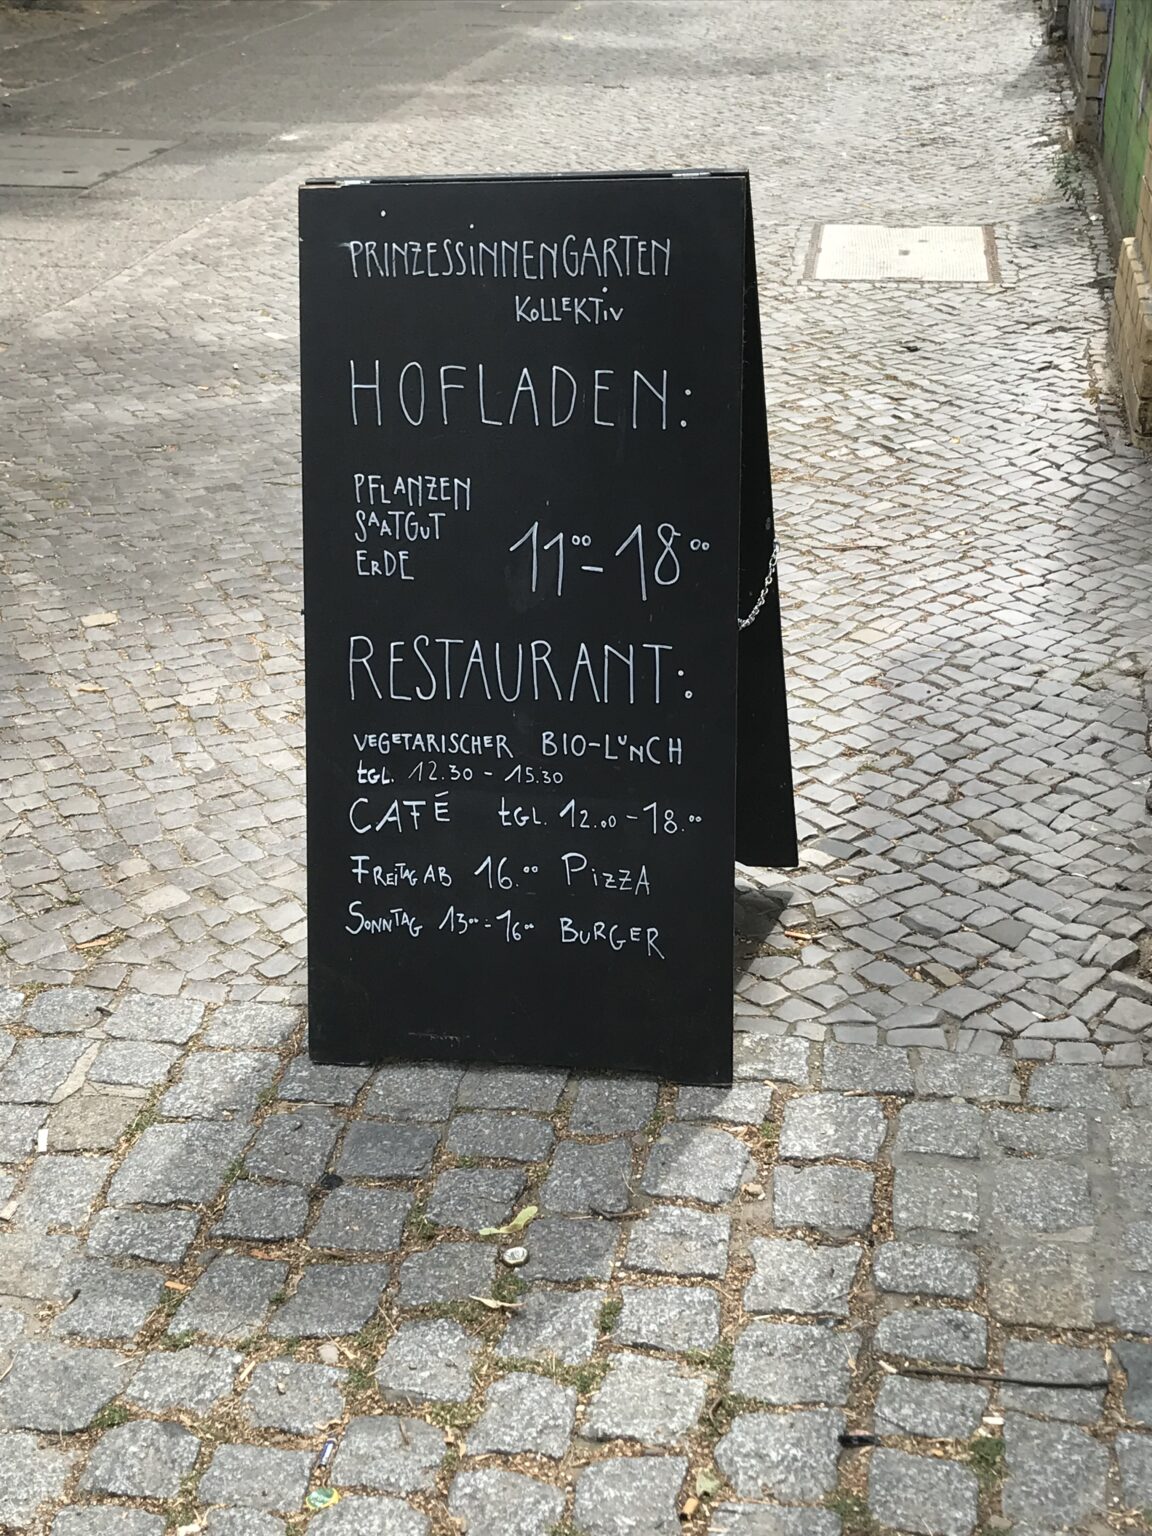 PRINZESSINNENGARTEN
KOLLEKTIV
HOFLADEN:
PFLANZEN
SAATGUT
ERDE
11⁰⁰-18⁰⁰
RESTAURANT:
VEGETARISCHER BIO-LUNCH
tGL. 12.30 - 15.30
CAFÉ tGL. 12.⁰⁰-18.⁰⁰
FREITAG AB 16.⁰⁰ PIZZA
SONNTAG 13⁰⁰-16⁰⁰ BURGER